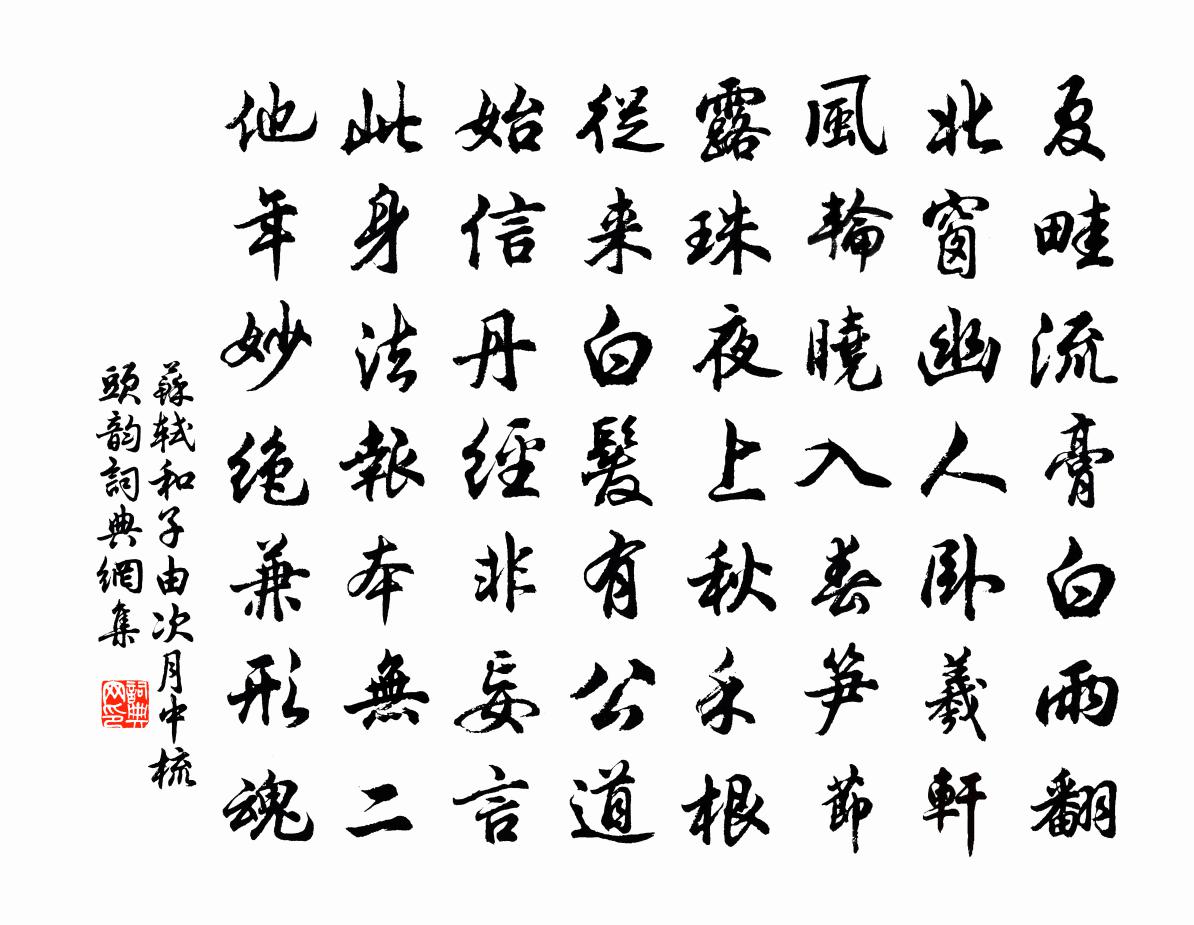 夏畦流膏白雨翻
北窗幽人卧羲軒
風輪曉入春笋節
露珠夜上秋禾根
從来白髮有公道
始信丹經非妄言
此身法報本無二
他年妙绝兼形魂
蘇軾和子由次月中梳
頭韵詞典網集
詞典
网印